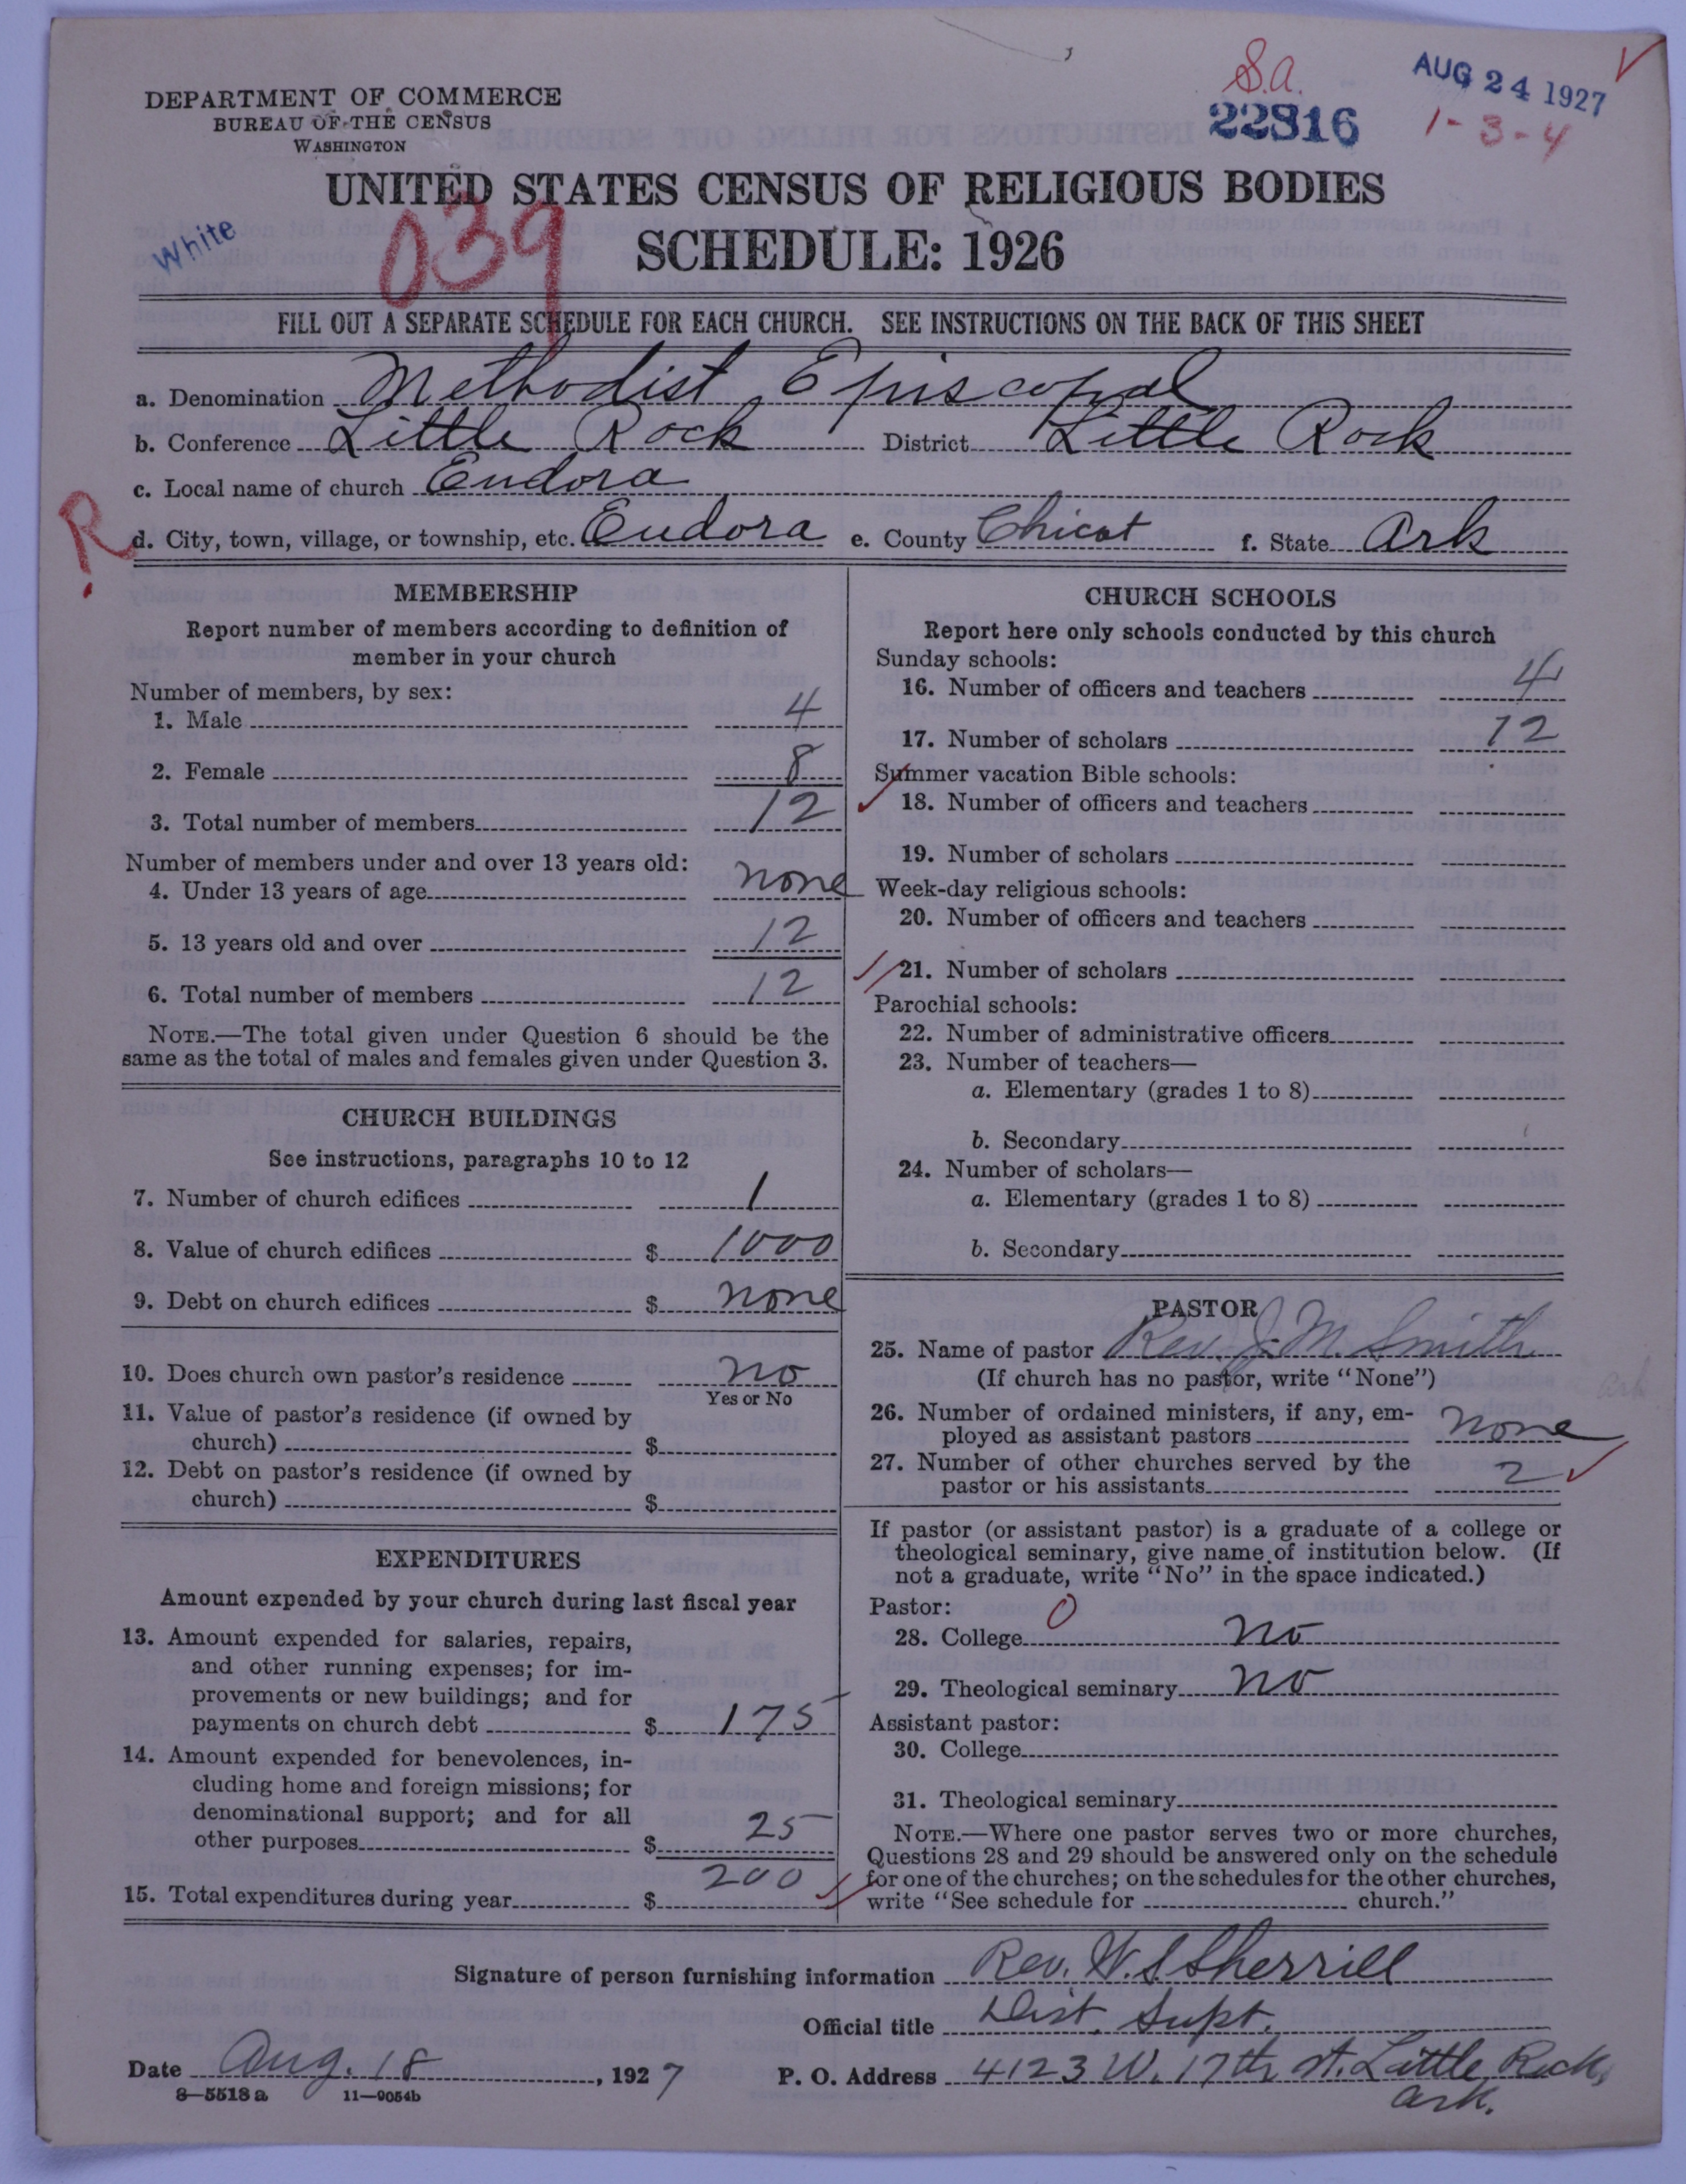 S.a.
AUG 24 1927
22816
1-3-4
DEPARTMENT OF COMMERCE
BUREAU OF THE CENSUS
WASHINGTON
UNITED STATES CENSUS OF RELIGIOUS BODIES
White
039
SCHEDULE: 1926
FILL OUT A SEPARATE SCHEDULE FOR EACH CHURCH. SEE INSTRUCTIONS ON THE BACK OF THIS SHEET
a. Denomination Methodist Episcopal
b. Conference Little Rock District Little Rock
c. Local name of church Eudora
R
d. City, town, village, or township, etc. Eudora e. County Chicot f. State Ark
MEMBERSHIP
Report number of members according to definition of
member in your church
Number of members, by sex:
1. Male 4
2. Female 8
3. Total number of members 12
Number of members under and over 13 years old:
4. Under 13 years of age none
5. 13 years old and over 12
6. Total number of members 12
NOTE.—The total given under Question 6 should be the
same as the total of males and females given under Question 3.
CHURCH BUILDINGS
See instructions, paragraphs 10 to 12
7. Number of church edifices 1
8. Value of church edifices $ 1000
9. Debt on church edifices $ none
10. Does church own pastor's residence no
Yes or No
11. Value of pastor's residence (if owned by
church) $
12. Debt on pastor's residence (if owned by
church) $
EXPENDITURES
Amount expended by your church during last fiscal year
13. Amount expended for salaries, repairs,
and other running expenses; for im-
provements or new buildings; and for
payments on church debt $ 175
14. Amount expended for benevolences, in-
cluding home and foreign missions; for
denominational support; and for all
other purposes $ 25
15. Total expenditures during year $ 200
CHURCH SCHOOLS
Report here only schools conducted by this church
Sunday schools:
16. Number of officers and teachers 4
17. Number of scholars 12
Summer vacation Bible schools:
18. Number of officers and teachers
19. Number of scholars
Week-day religious schools:
20. Number of officers and teachers
21. Number of scholars
Parochial schools:
22. Number of administrative officers
23. Number of teachers—
a. Elementary (grades 1 to 8)
b. Secondary
24. Number of scholars—
a. Elementary (grades 1 to 8)
b. Secondary
PASTOR
25. Name of pastor Rev. J. M. Smith
(If church has no pastor, write "None")
26. Number of ordained ministers, if any, em-
ployed as assistant pastors none
27. Number of other churches served by the
pastor or his assistants 2
If pastor (or assistant pastor) is a graduate of a college or
theological seminary, give name of institution below. (If
not a graduate, write "No" in the space indicated.)
Pastor: 0
28. College no
29. Theological seminary no
Assistant pastor:
30. College
31. Theological seminary
NOTE.—Where one pastor serves two or more churches,
Questions 28 and 29 should be answered only on the schedule
for one of the churches; on the schedules for the other churches,
write "See schedule for church."
Signature of person furnishing information Rev. W. S Sherrill
Official title Dist. Supt.
Date Aug. 18, 1927 P. O. Address 4123 W. 17th st. Little Rock,
Ark.
8-5518 a 11-9054b